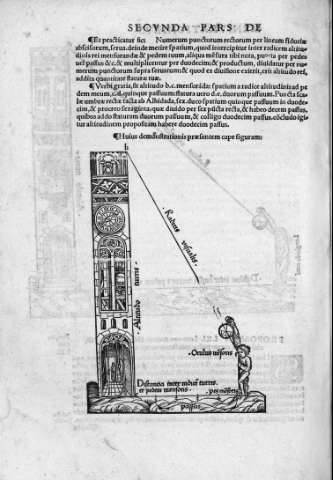 SECVNDA PARS DE
¶Et practicatur sic: Numerum punctorum rectorum per lineam fiduciæ
abscissorum, serua. deinde metire spatium, quod intercipitur inter radicem altitu-
dinis rei mensurandæ & pedem tuum, aliqua mensura tibi nota, puta per pedes
vel passus &c. & multiplicentur per duodecim: & productum, diuidatur per nu-
merum punctorum supra seruatum: & quod ex diuisione exierit, erit altitudo rei,
addita quantitate staturæ tuæ.
¶Verbi gratia, sit altitudo b.c. mensuranda: spatium a radice altitudinis ad pe
dem meum, quinque passuum: statura uero d.e. duorum passuum. Puncta sca-
læ umbræ rectæ tacta ab Alhidada, sex. duco spatium quinque passuum in duode-
cim, & procreo sexaginta: quæ diuido per sex puncta recta, & habeo decem passus,
quibus addo staturam duorum passuum, & colligo duodecim passus. cōcludo igi-
tur altitudinem propositam habere duodecim passus.
¶Huius demōstrationis præsentem cape figuram:
b
Radius visualis
Altitudo turris
Oculus mēsoris
Distantia inter radicem turris
et pedem mensoris
pes mēsoris
passus